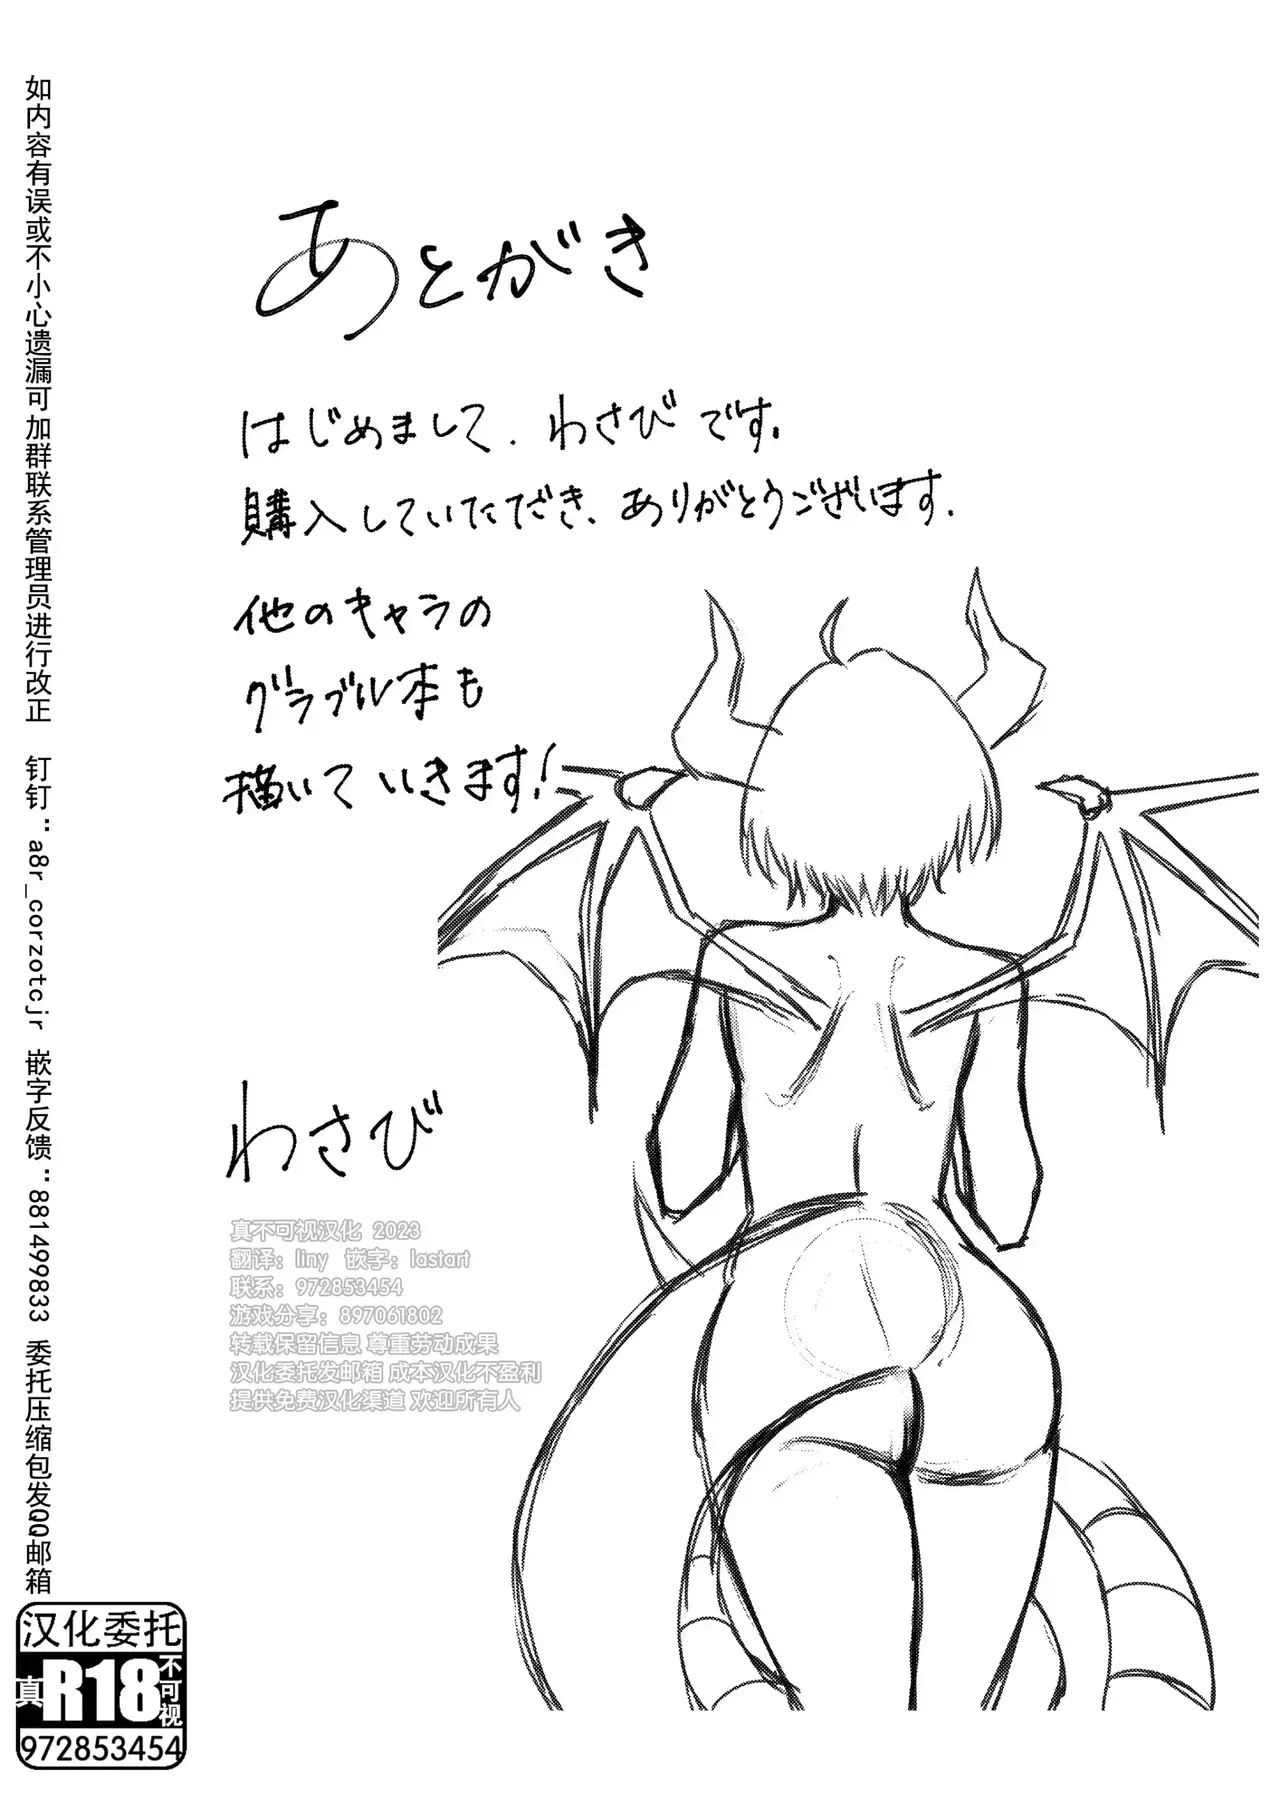 如内容有误或不小心遗漏可加群联系管理员进行改正 钉钉"a8r_corzotcjr 嵌字反馈"881499833 委托压缩包发QQ邮箱
あとがき
はじめまして、わさびです。
購入していただき、ありがとうございます。
他のキャラの
グラブル本も
描いていきます!
わさび
真不可视汉化 2023
翻译：liny 嵌字：lastart
联系：972853454
游戏分享：897061802
转载保留信息 尊重劳动成果
汉化委托发邮箱 成本汉化不盈利
提供免费汉化渠道 欢迎所有人
汉化委托
真R18不可视
972853454